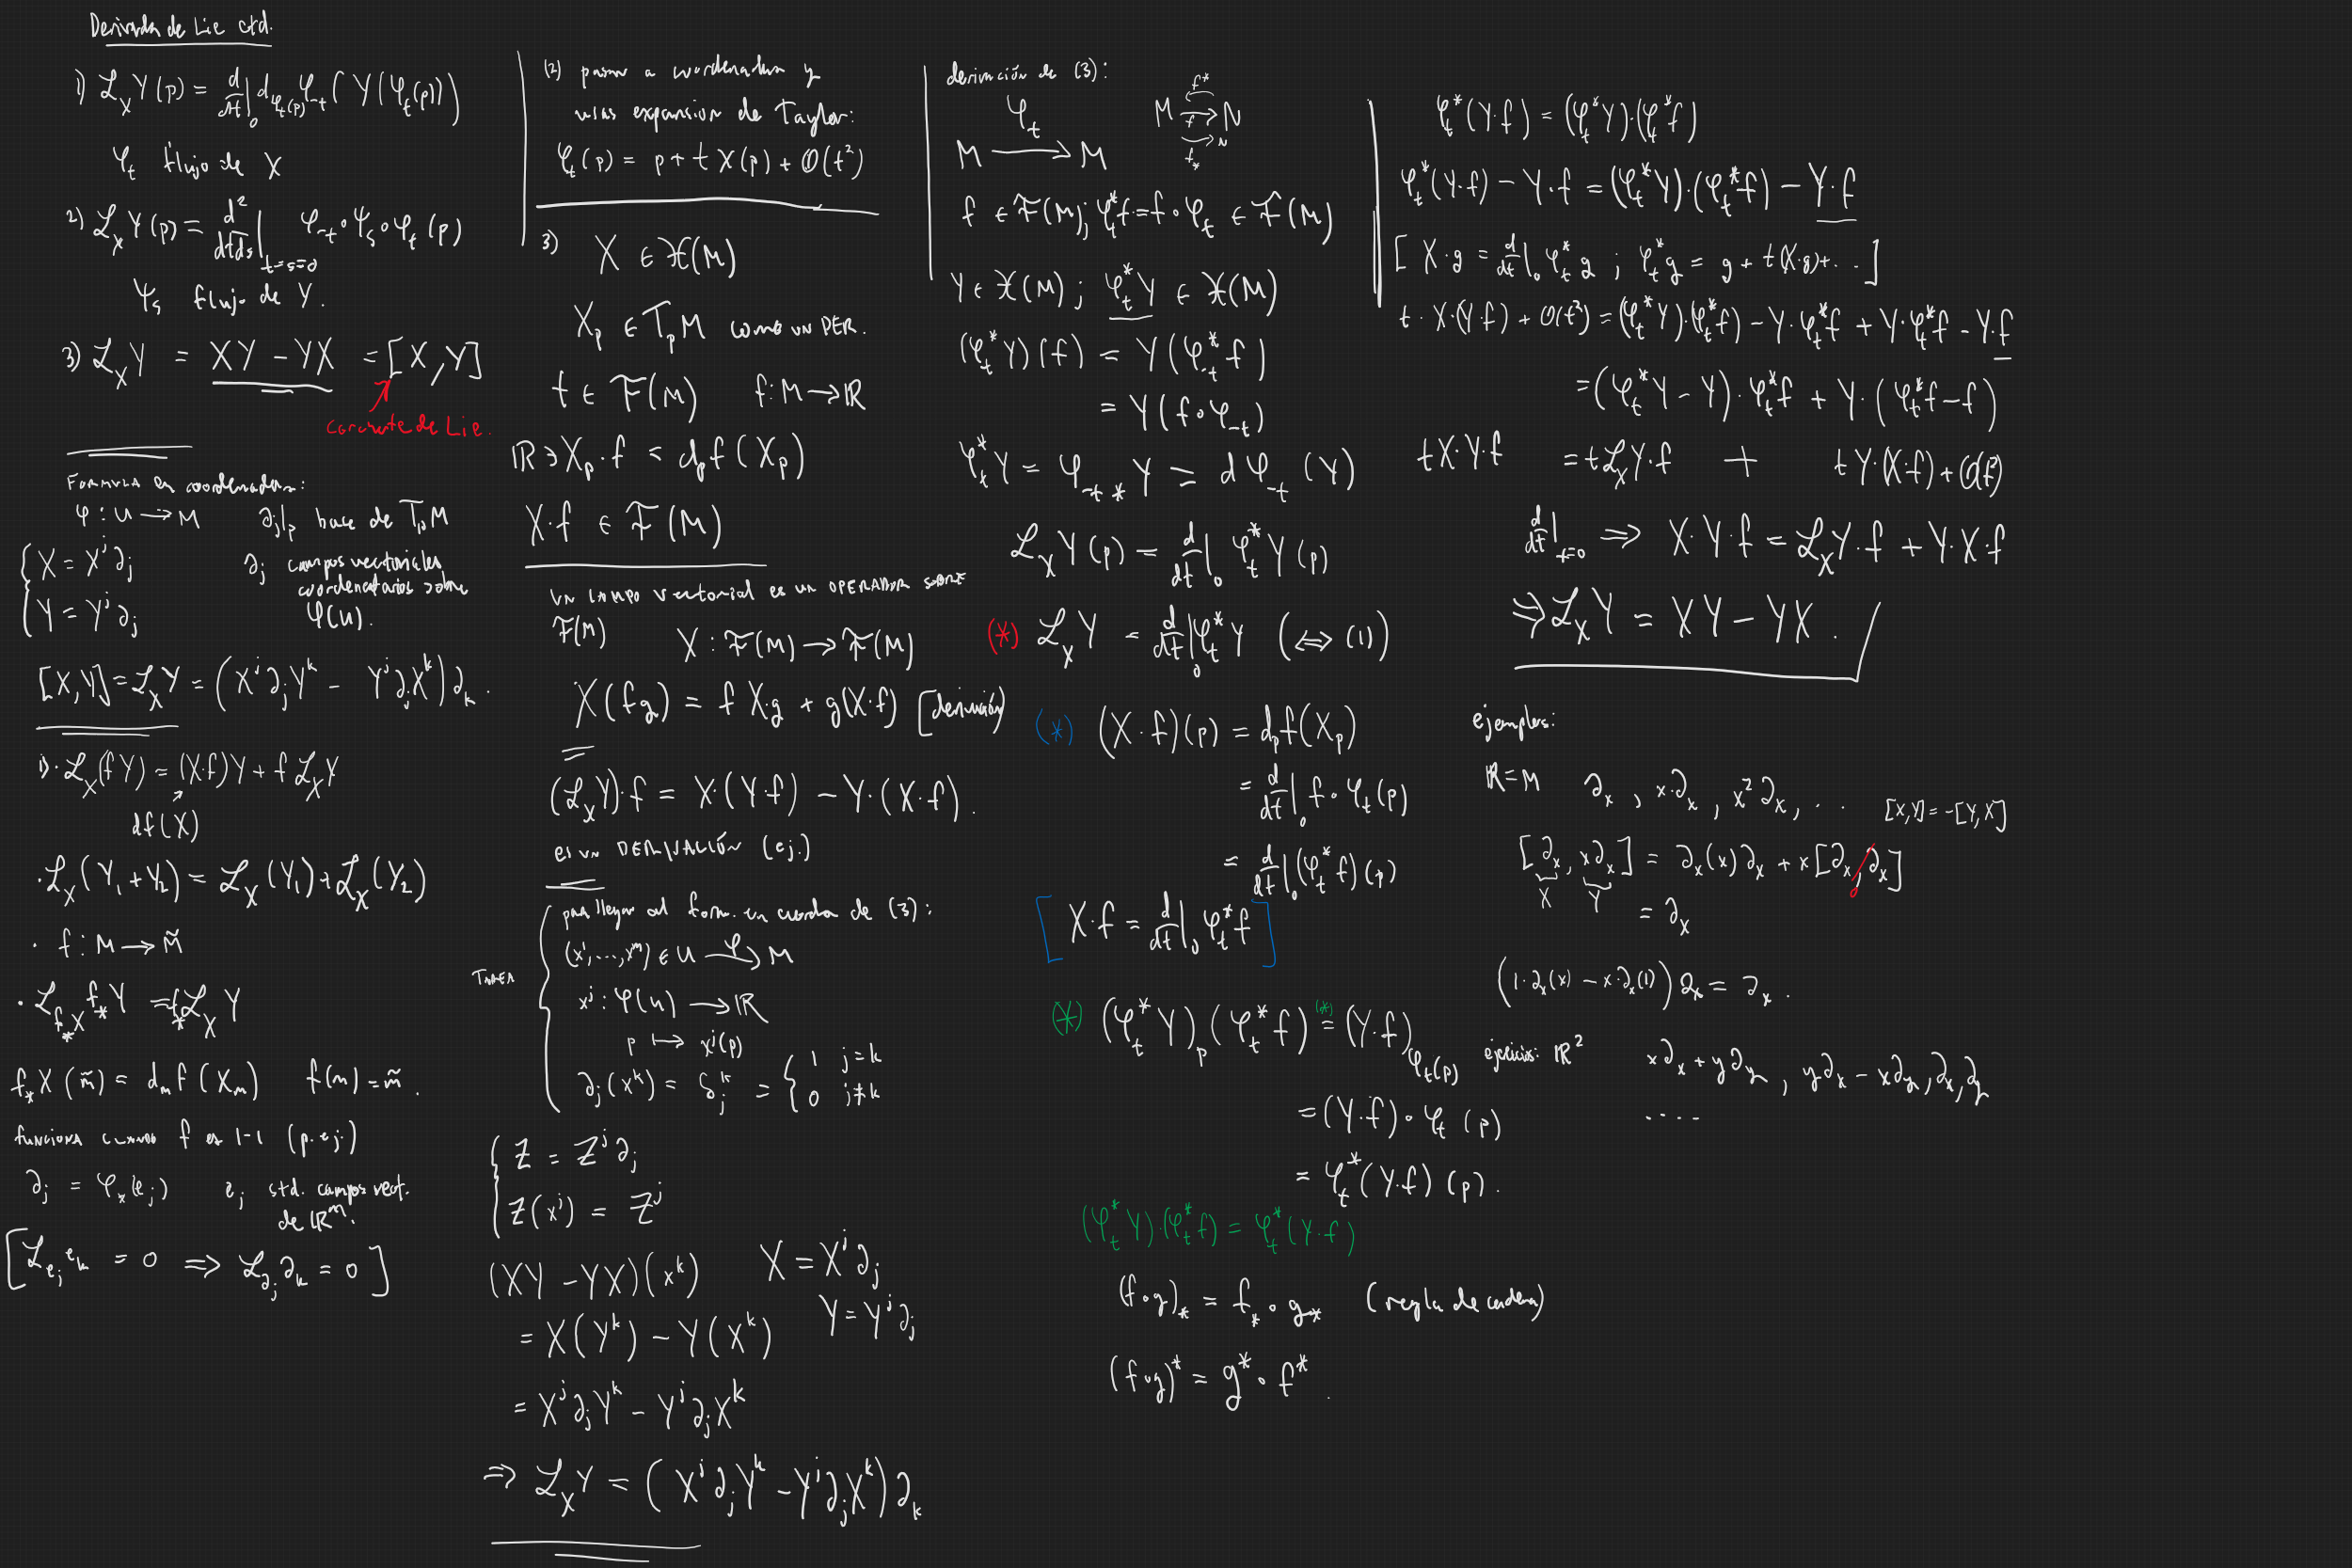 Derivada de Lie ctd.
1) ℒ_X Y(p) = d/dt|_0 d_{φ_t(p)} φ_{-t} (Y(φ_t(p)))
φ_t flujo de X
2) ℒ_X Y(p) = d²/dtds|_{t=s=0} φ_{-t} ∘ ψ_s ∘ φ_t (p)
ψ_s flujo de Y.
3) ℒ_X Y = XY - YX = [X, Y]
corchete de Lie.
FORMULA en coordenadas:
φ : U → M    ∂_j|_p base de T_pM
{ X = X^j ∂_j    ∂_j campos vectoriales
coordenatarios sobre
{ Y = Y^j ∂_j    φ(U).
[X, Y] = ℒ_X Y = (X^j ∂_j Y^k - Y^j ∂_j X^k) ∂_k.
1) · ℒ_X(fY) = (X·f)Y + f ℒ_X Y
df(X)
· ℒ_X(Y_1 + Y_2) = ℒ_X(Y_1) + ℒ_X(Y_2)
· f : M → M̃
· ℒ_{f_*X} f_*Y = f_* ℒ_X Y
f_*X(m̃) = d_m f(X_m)    f(m) = m̃.
funciona cuando f es 1-1 (p. ej.)
∂_j = φ_*(e_j)    e_j std. campos vect.
de ℝ^m.
[ℒ_{e_j} e_k = 0 ⇒ ℒ_{∂_j} ∂_k = 0]
(2) pasar a coordenadas y
usas expansion de Taylor:
φ_t(p) = p + t X(p) + O(t²)
3) X ∈ 𝔛(M)
X_p ∈ T_pM como un DER.
f ∈ ℱ(M)    f : M → ℝ
ℝ ∋ X_p·f = d_p f(X_p)
X·f ∈ ℱ(M)
UN campo vectorial es un OPERADOR SOBRE
ℱ(M)    X : ℱ(M) → ℱ(M)
X(fg) = f X·g + g(X·f) [derivación]
(ℒ_X Y)·f = X·(Y·f) - Y·(X·f).
es un DERIVACIÓN (ej.)
TAREA
para llegar al form. en coorden de (3):
(x^1, ..., x^m) ∈ U →^φ M
x^j : φ(U) → ℝ
p ↦ x^j(p)
∂_j(x^k) = δ_j^k = { 1  j = k
0  j ≠ k
{ Z = Z^j ∂_j
{ Z(x^j) = Z^j
(XY - YX)(x^k)    X = X^j ∂_j
= X(Y^k) - Y(X^k)    Y = Y^j ∂_j
= X^j ∂_j Y^k - Y^j ∂_j X^k
⇒ ℒ_X Y = (X^j ∂_j Y^k - Y^j ∂_j X^k) ∂_k
derivación de (3):
φ_t    f^*
M → M    M →^f N
f_*
f ∈ ℱ(M); φ_t^* f = f ∘ φ_t ∈ ℱ(M)
Y ∈ 𝔛(M); φ_t^* Y ∈ 𝔛(M)
(φ_t^* Y)(f) = Y(φ_{-t}^* f)
= Y(f ∘ φ_{-t})
φ_t^* Y = φ_{-t *} Y = dφ_{-t}(Y)
ℒ_X Y(p) = d/dt|_0 φ_t^* Y(p)
(*) ℒ_X Y = d/dt|_0 φ_t^* Y (⇔ (1))
(*) (X·f)(p) = d_p f(X_p)
= d/dt|_0 f ∘ φ_t(p)
= d/dt|_0 (φ_t^* f)(p)
[X·f = d/dt|_0 φ_t^* f]
(*) (φ_t^* Y)_p (φ_t^* f) =^{(*)} (Y·f)_{φ_t(p)}
= (Y·f) ∘ φ_t (p)
= φ_t^*(Y·f)(p).
(φ_t^* Y)·(φ_t^* f) = φ_t^*(Y·f)
(f∘g)_* = f_* ∘ g_*    (regla de cadena)
(f∘g)^* = g^* ∘ f^*.
φ_t^*(Y·f) = (φ_t^* Y)·(φ_t^* f)
φ_t^*(Y·f) - Y·f = (φ_t^* Y)·(φ_t^* f) - Y·f
[X·g = d/dt|_0 φ_t^* g ; φ_t^* g = g + t(X·g) + ...]
t·X·(Y·f) + O(t²) = (φ_t^* Y)·(φ_t^* f) - Y·φ_t^* f + Y·φ_t^* f - Y·f
= (φ_t^* Y - Y)·φ_t^* f + Y·(φ_t^* f - f)
tX·Y·f = tℒ_X Y·f + tY·(X·f) + O(t²)
d/dt|_{t=0} ⇒ X·Y·f = ℒ_X Y·f + Y·X·f
⇒ ℒ_X Y = XY - YX.
ejemplos:
ℝ = M    ∂_x, x·∂_x, x² ∂_x, ...    [X,Y] = -[Y,X]
[∂_x, x∂_x] = ∂_x(x)∂_x + x[∂_x, ∂_x]
X  Y    0
= ∂_x
(1·∂_x(x) - x·∂_x(1)) ∂_x = ∂_x.
ejercicios: ℝ²    x∂_x + y∂_y, y∂_x - x∂_y, ∂_x, ∂_y
....